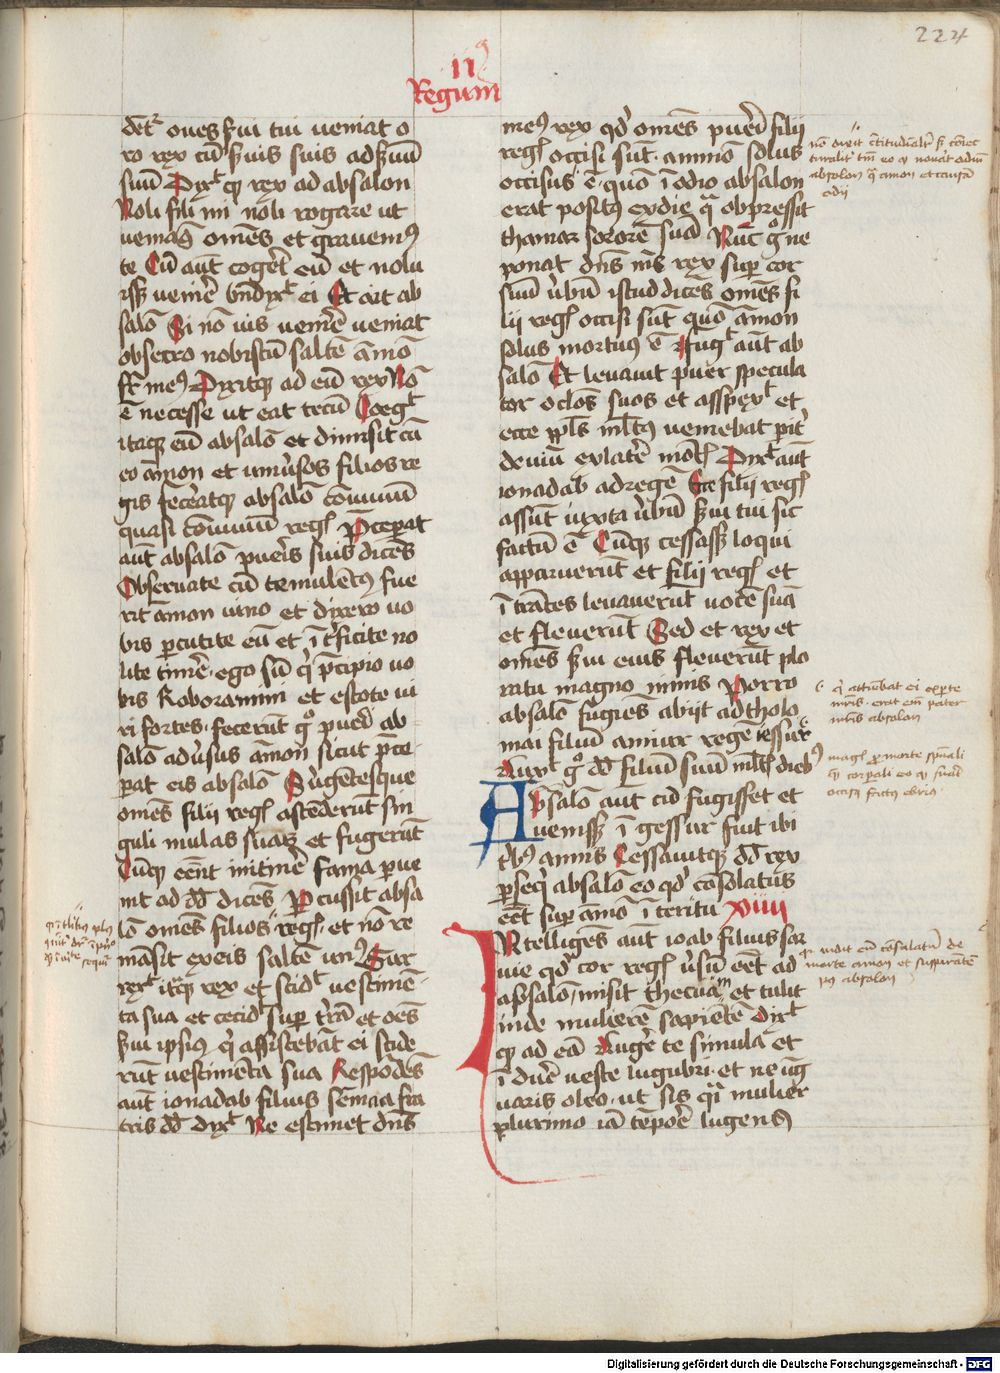 224
ii9
Regum
det᷑ oues s̄ui tui veniat o
ro rex cū s̄uis suis ad s̄uū
suū Dix᷑ qȝ rex ad absalon
Noli fili mi noli rogare ut
veniam9 omēs et grauem9
te Cū aūt coget᷑ eū et nolu
issȝ venīre bn̄dix᷑ ei Et ait ab
salō Si nō vis venīre veniat
obsecro nobiscū saltē āmō
fr̄ me9 Dixitqȝ ad eū rex Nō
ē necesse ut eat tecū Coeg᷑
itaqȝ eū absalō et dimisit cū
eo āmon et univ̾sos filios re
gis fecīatqȝ absalō cōuiuiū
quasi cōuiuiū reg̾ P̄ceperat
aūt absalō pueris suis dicēs
Obseruate cū temulēt9 fue
rit āmon vino et dixero vo
bis percutite eū et ī t̾ficite no
lite timēre ego sū qͥ p̄cipio vo
bis Roboramini et estote vi
ri fortes fecerūt gͦ pueri ab
salō adv̾sus āmon sicut p̄ce
perat eis absalō Surgētesque
omēs filii reg̾ ascēderūt sin
guli mulas suas et fugerūt
Cūqȝ eēnt in itinēre fama perue
nit ad dd̄ dicēs Percussit absa
lō omēs filios reg̾ et nō re
māsit ex eis saltē un9 Sur
rex᷑ itaqȝ rex et scid᷑ vestimē
ta sua et cecid᷑ super t̾rā et oēs
s̄ui ipsius qͥ assistebāt ei scide
rūt vestimēta sua Respōdēs
aūt ionadab filius sēmaa fra
tris dd̄ dix᷑ Ne estimet dn̄s
me9 rex qd̾ omēs pueri filii
reg̾ occisi sūt āmon solus
occisus ē quō ī odio absalon
erat posit9 ex die qͣ obpressit
thamar sororē suā Nūc gͦ ne
ponat dn̄s m̄s rex super cor
suū v̾bū istud dicēs omēs fi
lii reg̾ occisi sūt quō āmon
solus mortuus ē Fug᷑ aūt ab
salō Et leuauit puer specula
tor oclos suos et asspex᷑ et
ecce ppl̄s ml̄t9 veniebat per it̾
deuiū ex latere mōt̾ Dix᷑ aūt
ionadab ad regē Ecce filii reg̾
assūt iuxta v̾bū s̄ui tui sic
factū ē Cūqȝ cessassȝ loqui
apparuerūt et filii reg̾ et
ītrātes leuauerūt vocē suā
et fleuerūt Sed et rex et
omēs s̄ui eius fleuerūt plo
ratu magno nimis Porro
absalō fugiēs abiit ad tholo
mai filiū amiur regē iessur
Lux᷑ gͦ dd̄ filiū suū ml̄t̾ dieb9
Absalō aūt cū fugisset et
venissȝ ī gessur fuit ibi
t̾b9 annis Cessauitqȝ dd̄ rex
perseqͥ absalō eo qd̾ cōsolatus
eēt super āmō īteritu XIIII
Intelligēs aūt ioab filius sar
vie qd̾ cor reg̾ v̾sū eēt ad
absalō misit thecuam et tulit
inde mulierē sapiētē Dix᷑
qȝ ad eā Lugēre te simula et
īdūe veste lugubri et ne ūg
uaris oleo ut sis qͣi mulier
plurimo iā tēpore lugens
nō dixit
absolon qͣ amon et causā
odii
qͥ attinebat ei ex parte
mr̄is erat eī pater
mr̄is absolon
mag̾ pro morte spūali
qȝ corporali eo qȝ fuit
occisȝ ebrius
qͥ vidit eū cōsulatū de
morte amon et suspirātē
post absolon
Digitalisierung gefördert durch die Deutsche Forschungsgemeinschaft - DFG